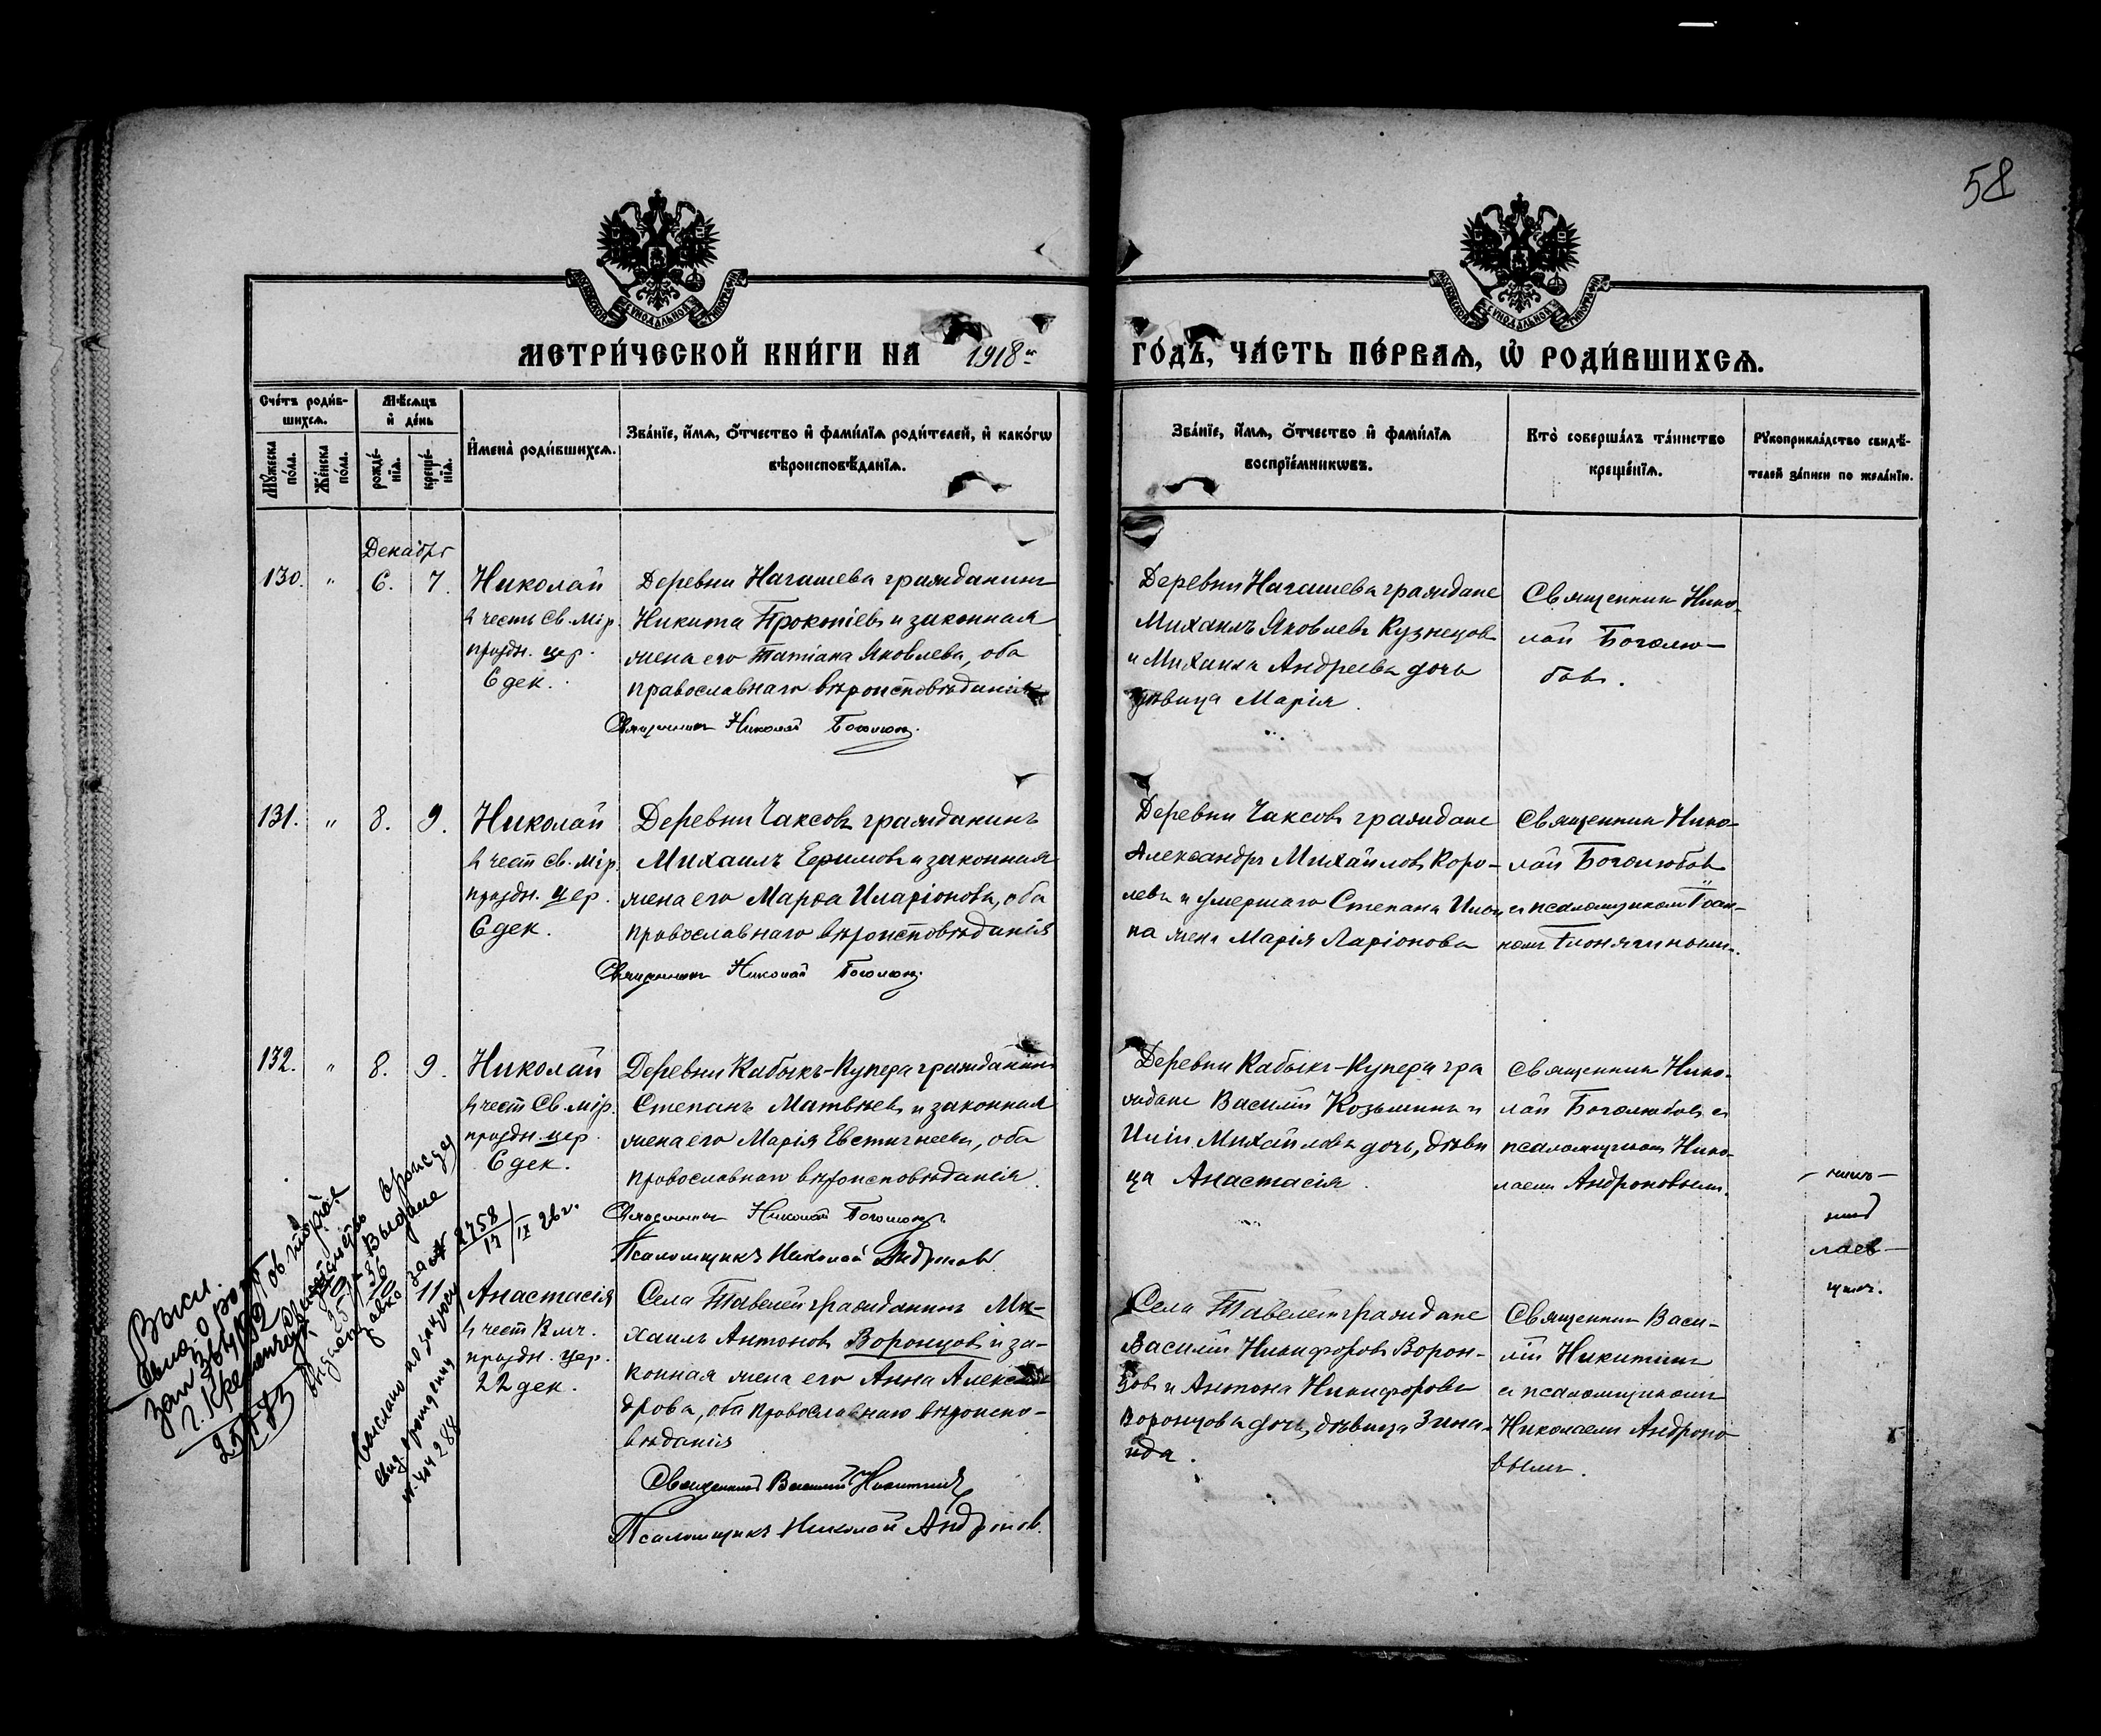 58
МОСКОВСКОЙ СѴНОДАЛЬНОЙ ТИПОГРАФІИ
МОСКОВСКОЙ СѴНОДАЛЬНОЙ ТИПОГРАФІИ
МЕТРИ́ЧЕСКОЙ КНИ́ГИ НА 1918й
ГО́ДЪ, ЧА́СТЬ ПЕ́РВАѦ, Ѡ҆ РОДИ́ВШИХСѦ.
Сче́тъ роди́в-
шихсѧ.
Мꙋ́жеска по́ла.
Же́нска по́ла.
Мѣ́сѧцъ
и҆ де́нь
рожде́-
нїѧ.
креще́-
нїѧ.
И҆мена̀ роди́вшихсѧ.
Зва́нїе, и҆́мѧ, о҆́тчество и҆ фами́лїѧ роди́телей, и҆ како́гѡ
вѣроисповѣ́данїѧ.
Зва́нїе, и҆́мѧ, о҆́тчество и҆ фами́лїѧ
воспрїе́мникѡвъ.
Кто̀ соверша́лъ та́инство
креще́нїѧ.
Рꙋкоприкла́дство свидѣ́-
телей за́писи по жела́нїю.
Декабрь
130. " 6. 7. Николай
въ честь Св. Мѵр.
праздн. цер.
6 дек.
Деревни Нагашева гражданинъ
Никита Прокопіевъ и законная
жена его Татіана Яковлева, оба
православнаго вѣроисповѣданія
Священникъ Николай Боголюбовъ.
Деревни Нагашева граждане
Михаилъ Яковлевъ Кузнецовъ
и Михаила Андреева дочь
дѣвица Марія.
Священник Нико-
лай Боголю-
бовъ.
131. " 8. 9. Николай
въ чест Св. Мѵр.
праздн. цер.
6 дек.
Деревни Чаксовъ гражданинъ
Михаилъ Ефимовъ и законная
жена его Марѳа Иларіонова, оба
православнаго вѣроисповѣданія
Священникъ Николай Боголюбовъ.
Деревни Чаксовъ граждане
Александръ Михайловъ Коро-
левъ и умершаго Степана
жена Марія Ларіонова
Священник Нико-
лай Боголюбовъ
съ псаломщиком Іоан-
номъ
132. " 8. 9. Николай
въ чест Св. Мѵр.
праздн. цер.
6 дек.
Деревни Кабыкъ-Купера гражданинъ
Степанъ Матвѣевъ и законная
жена его Марія Евстигнеева, оба
православнаго вѣроисповѣданія.
Священникъ Николай Боголюбовъ
Псаломщикъ Николай Андроновъ
Деревни Кабыкъ-Купера гра
ждане Василій Козьминъ и
Иліи Михайлова дочь, дѣви
ца Анастасія.
Священник Нико-
лай Боголюбовъ съ
псаломщиком Нико-
лаемъ Андроновымъ.
11 Анастасія
въ чест Вмч.
праздн. цер.
22 дек.
Села Тавелей гражданинъ Ми-
хаилъ Антоновъ Воронцовъ и за-
конная жена его Анна Алексан
дрова, оба православнаго вѣроиспо-
вѣданія
Священникъ Василій Никитинъ
Псаломщикъ Николай Андронов.
Села Тавелей граждане
Василій Никифоровъ Ворон-
цовъ и Антона Никифорова
Воронцова дочь, дѣвица Зина-
ида.
Священник Васи-
лій Никитинъ
съ псаломщикомъ
Николаемъ Андроно
вымъ.
Высл.
г. Кременчуг
Выслано по запросу
свид. о рождении